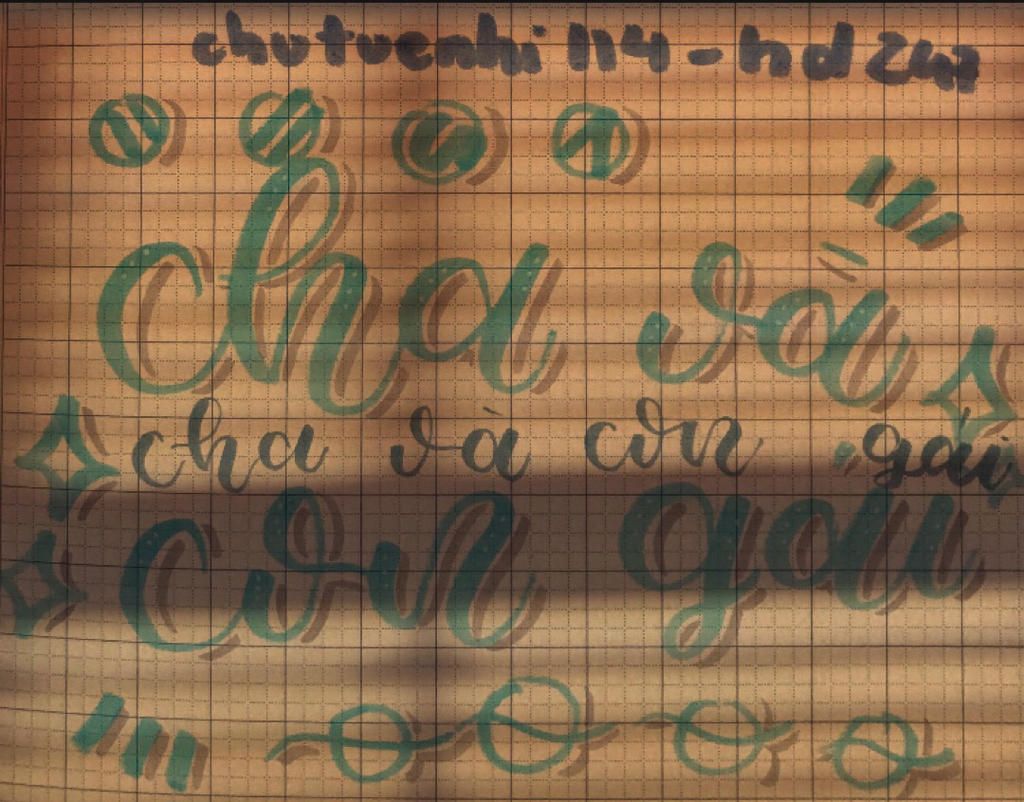 chutuenhi 114 - hd 247
cha và
cha và con gái
con gai